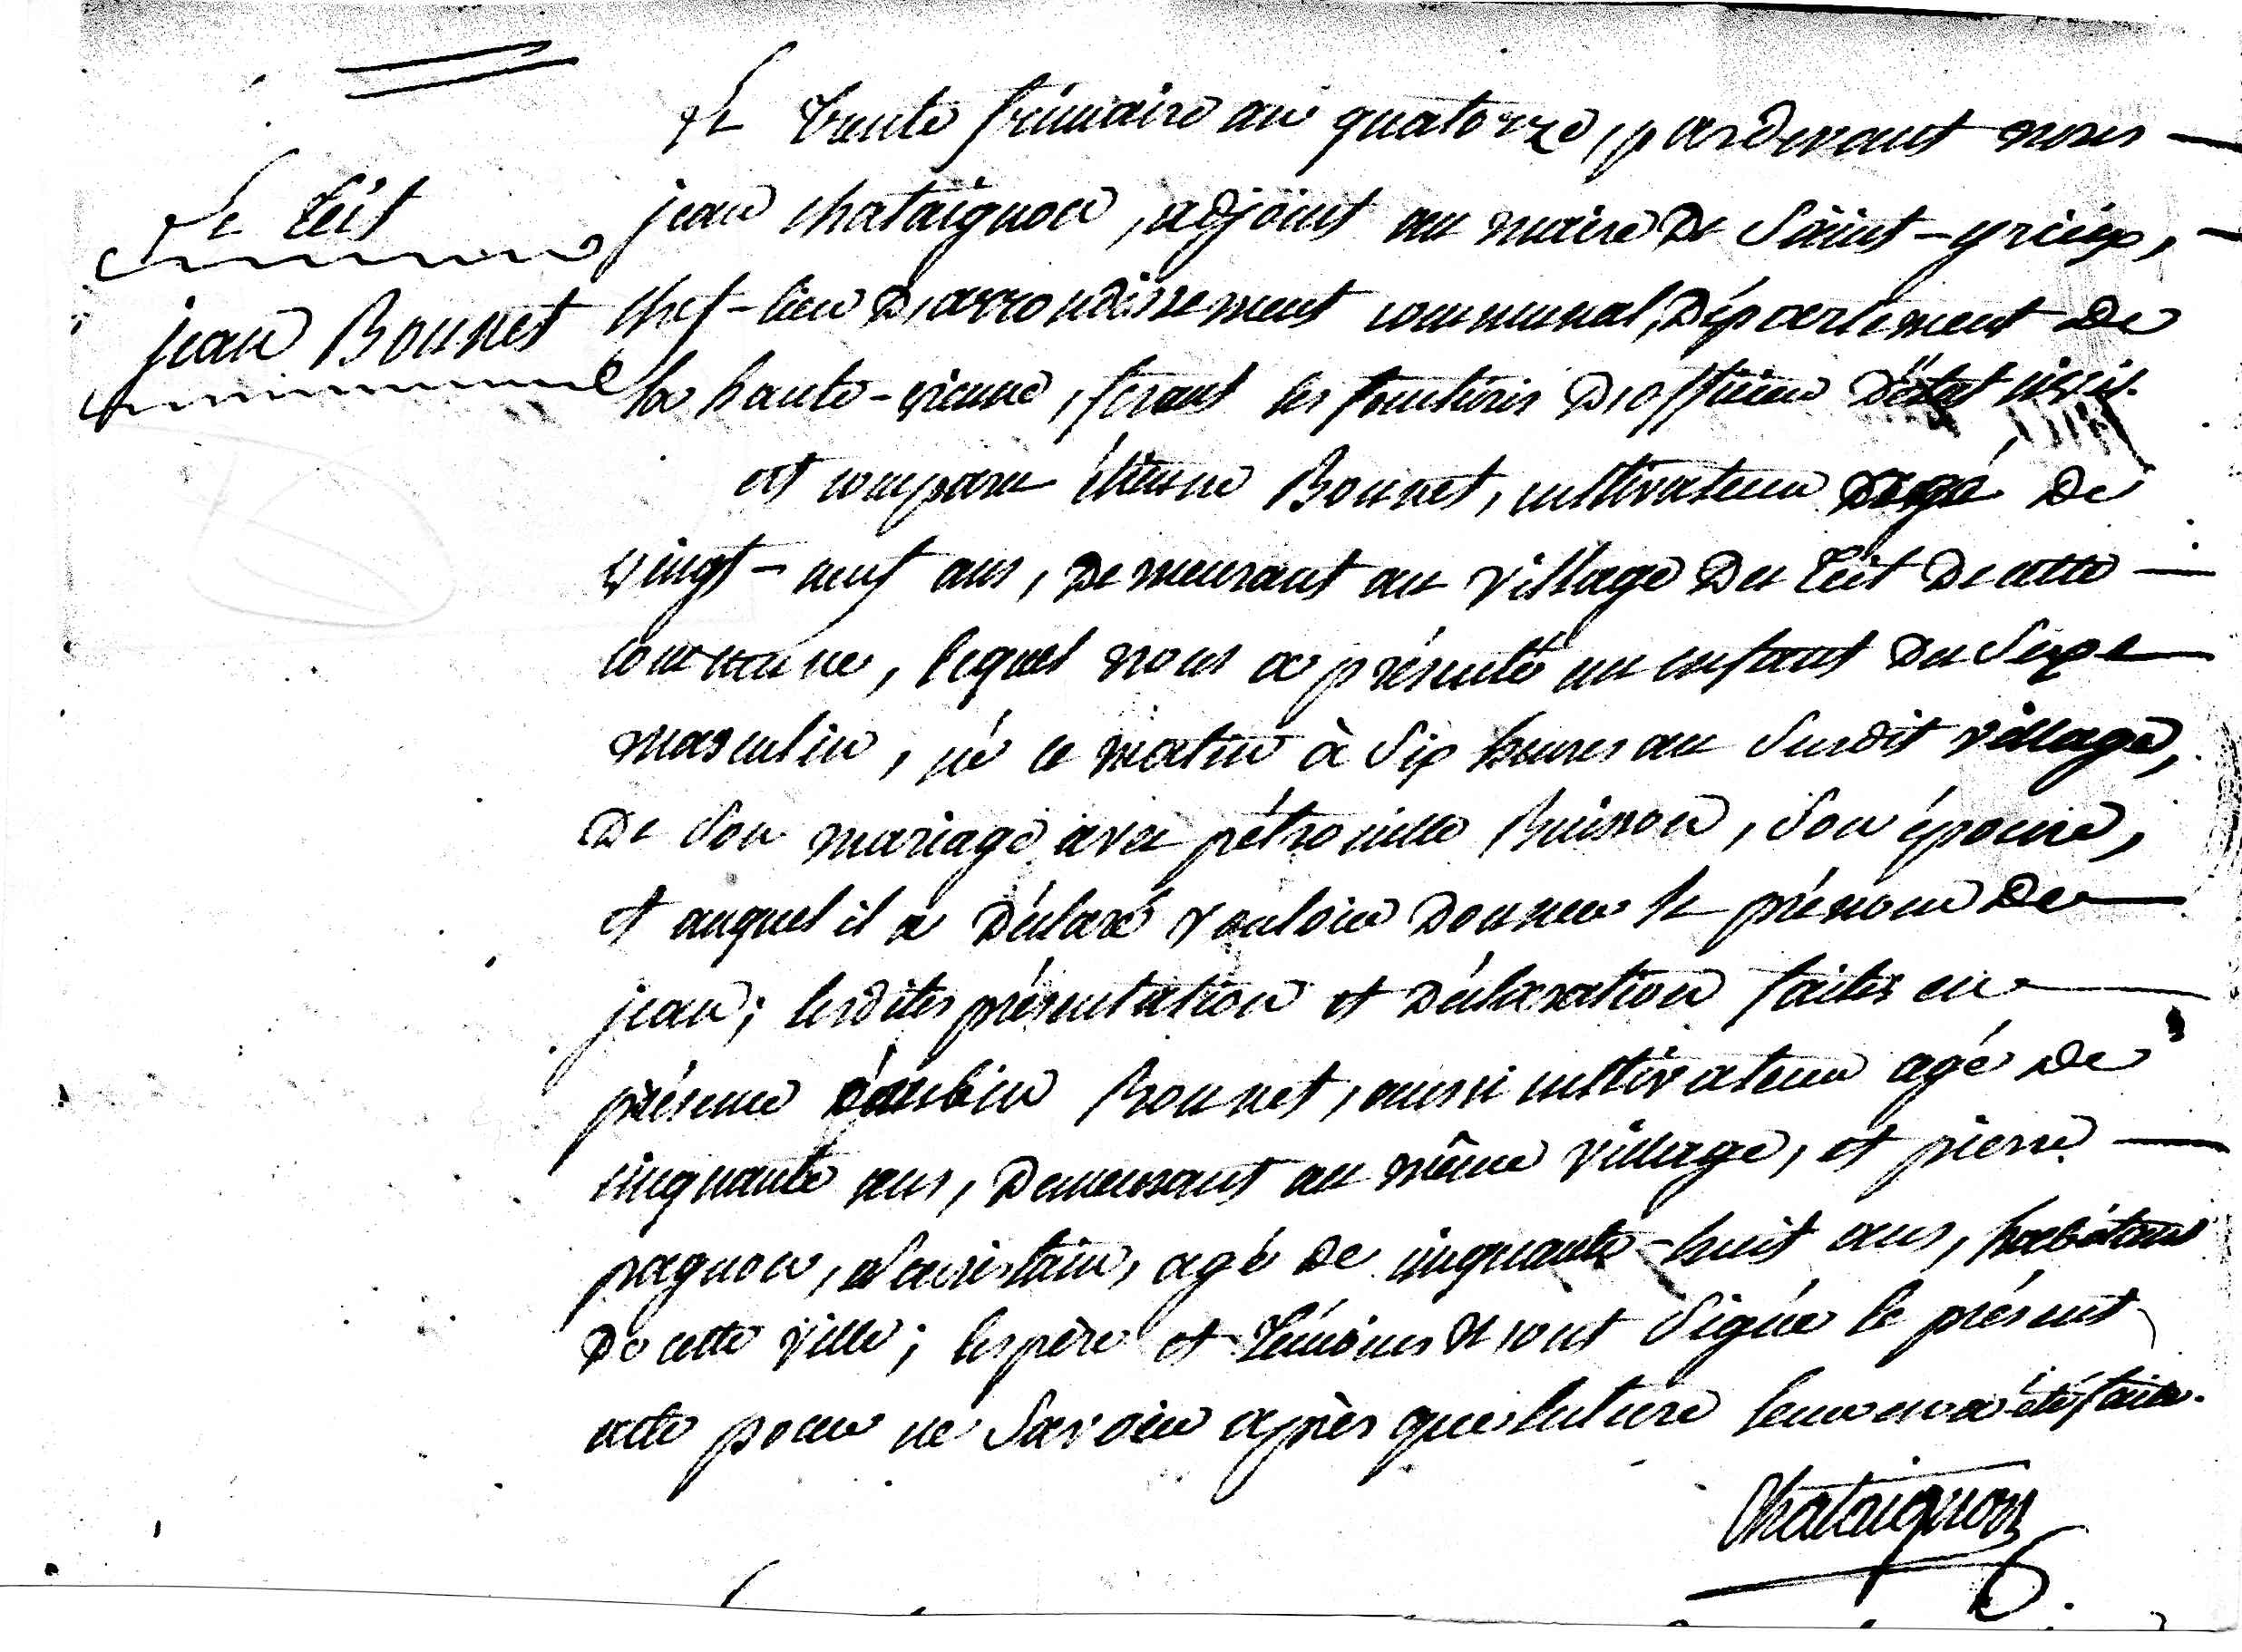 Le teit
jean Bonnet
Le trente frimaire an quatorze, pardevant nous
jean chataignon, adjoint au maire de Saint-yrieix,
chef-lieu d'arrondissement communal, département de
la haute-vienne, fesant les fonctions d'officier d'état civil.
est comparu étienne Bonnet, cultivateur agé de
vingt-neuf ans, demeurant au village du teit de cette
commune, lequel nous a présenté un enfant du Sexe
masculin, né ce matin à Six heures au Susdit village,
de Son mariage avec pétronille Buisson, Son épouse,
et auquel il a déclaré vouloir donner le prénom de
jean; lesdites présentation et déclaration faites en
présence Bonnet, aussi cultivateur agé de
cinquante ans, demeurant au même village, et pierre
pagnon, Sacristain, agé de cinquante-huit ans, habitans
de cette ville; les père et témoins n'ont Signé le présent
acte pour ne Savoir après que lecture leur en a été faite.
Chataignon